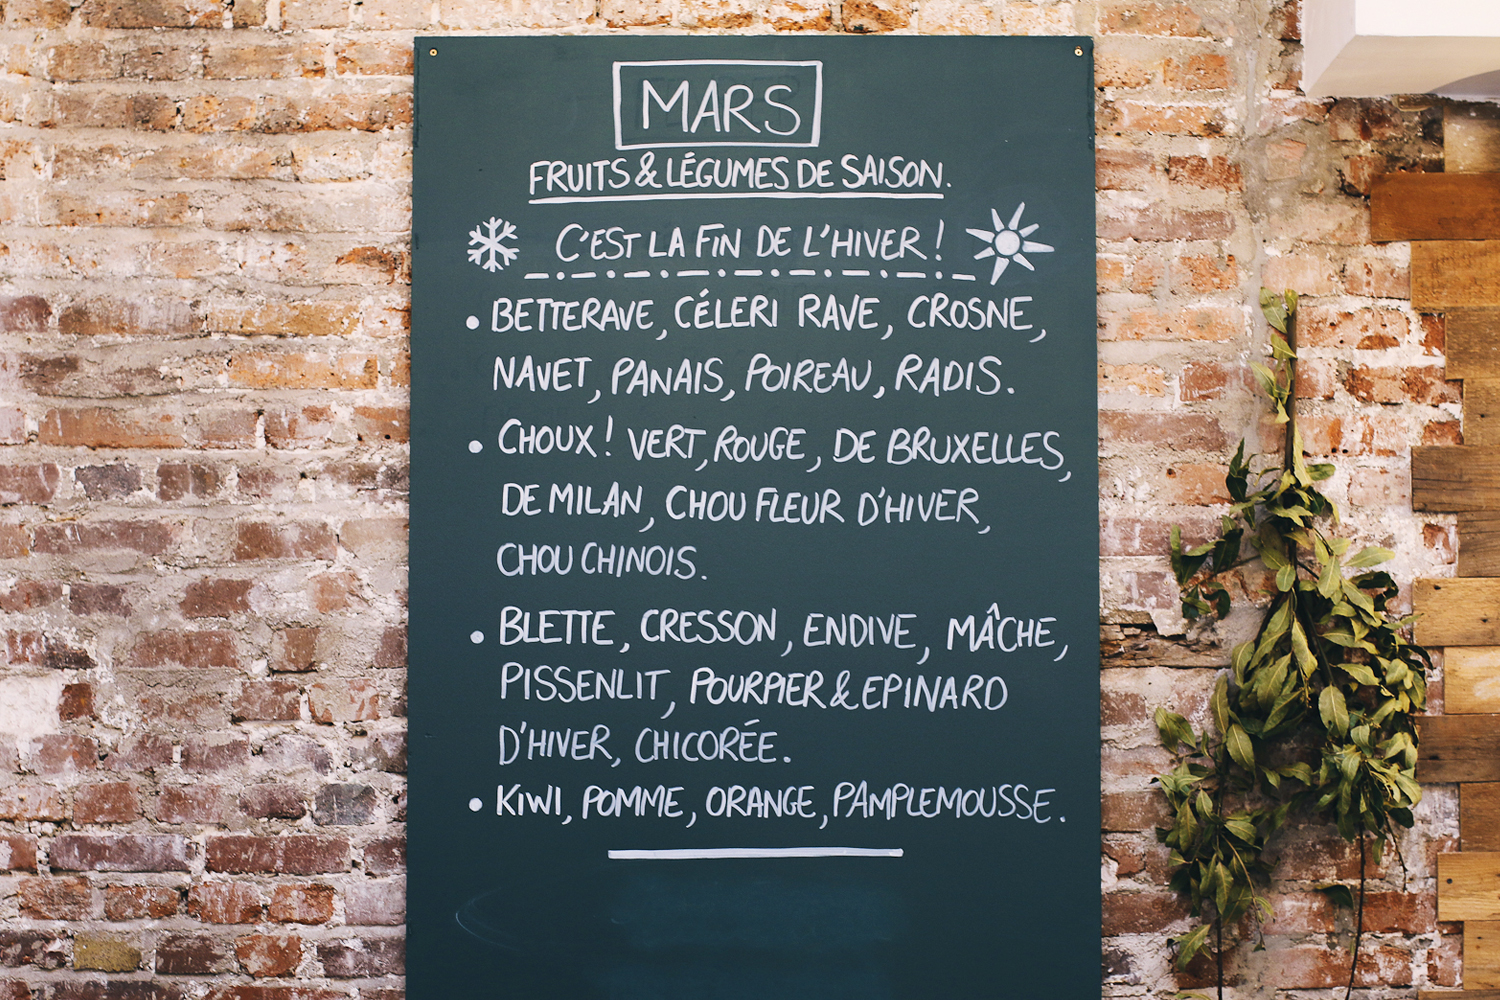 MARS
FRUITS & LÉGUMES DE SAISON.
C'EST LA FIN DE L'HIVER !
• BETTERAVE, CÉLERI RAVE, CROSNE,
NAVET, PANAIS, POIREAU, RADIS.
• CHOUX ! VERT, ROUGE, DE BRUXELLES,
DE MILAN, CHOU FLEUR D'HIVER,
CHOU CHINOIS.
• BLETTE, CRESSON, ENDIVE, MÂCHE,
PISSENLIT, POURPIER & EPINARD
D'HIVER, CHICORÉE.
• KIWI, POMME, ORANGE, PAMPLEMOUSSE.